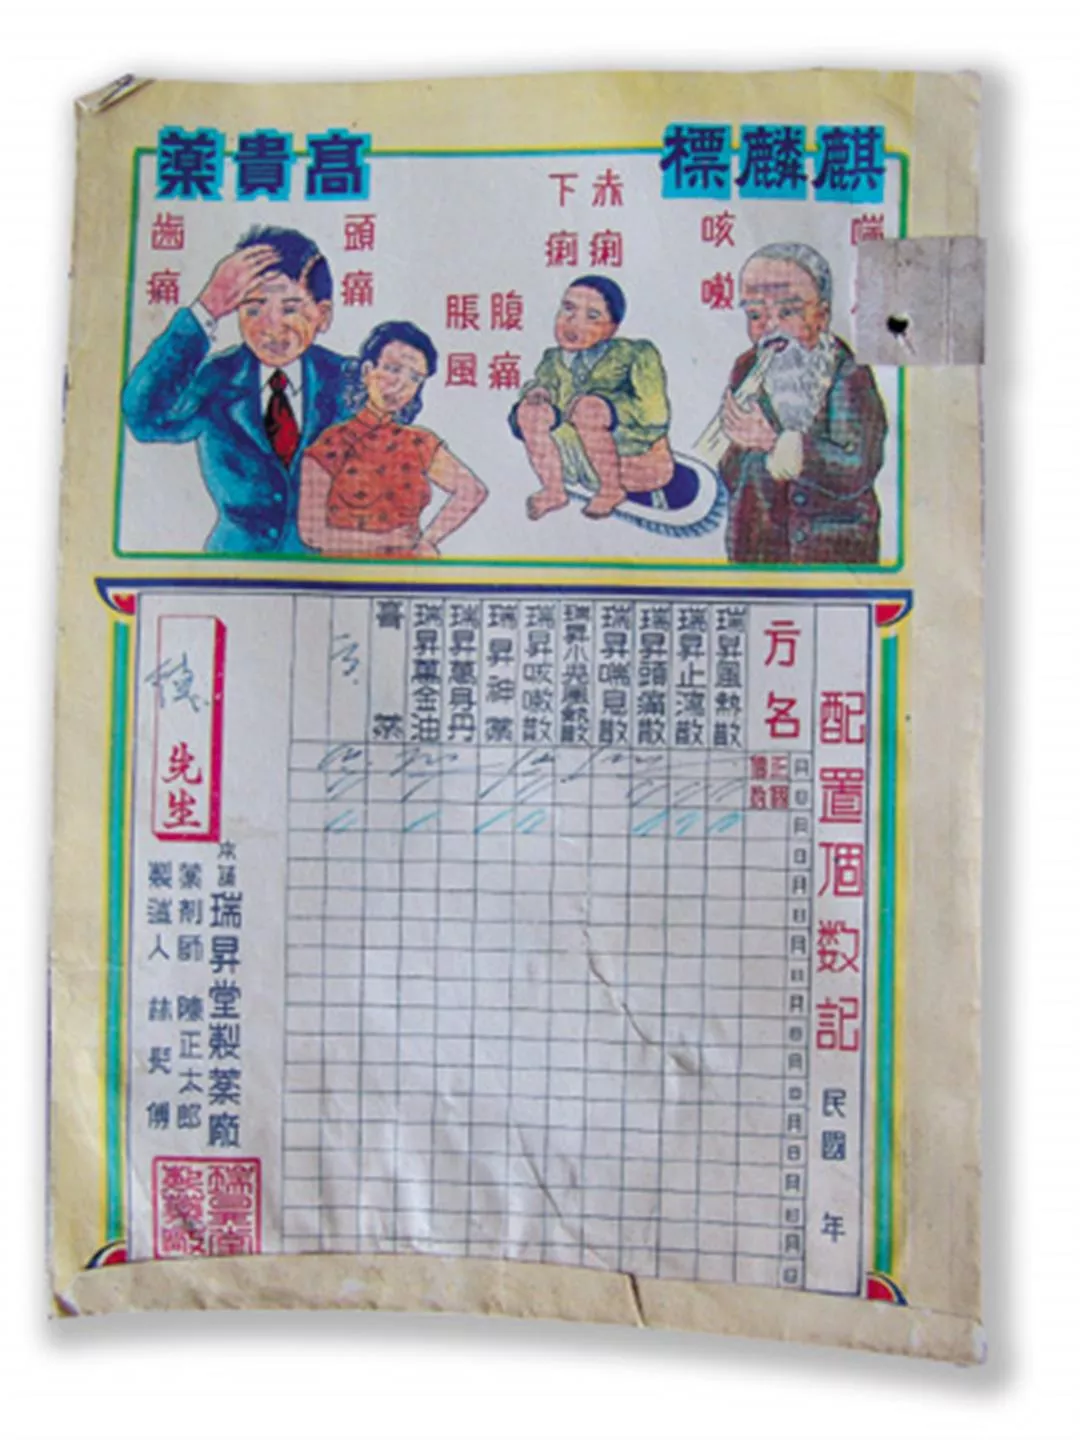 麒麟標
高貴薬
喘
咳嗽
赤痢
下痢
腹痛
脹風
頭痛
歯痛
配置個数記 民國 年
方名
正個
月日
月日
月日
月日
月日
月日
月日
月日
月日
瑞昇風熱散
瑞昇止瀉散
瑞昇頭痛散
瑞昇喘見散
瑞昇小児風熱散
瑞昇咳嗽散
瑞昇神薬
瑞昇萬身丹
瑞昇萬金油
膏薬
先生
本舗 瑞昇堂製薬廠
薬剤師 陳正太郎
製造人 林
瑞昇堂
製藥廠